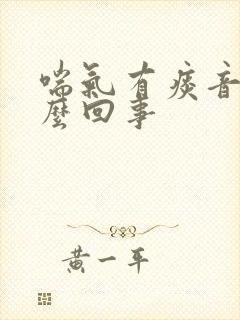 喘氣有痰音
麼回事
黃一平